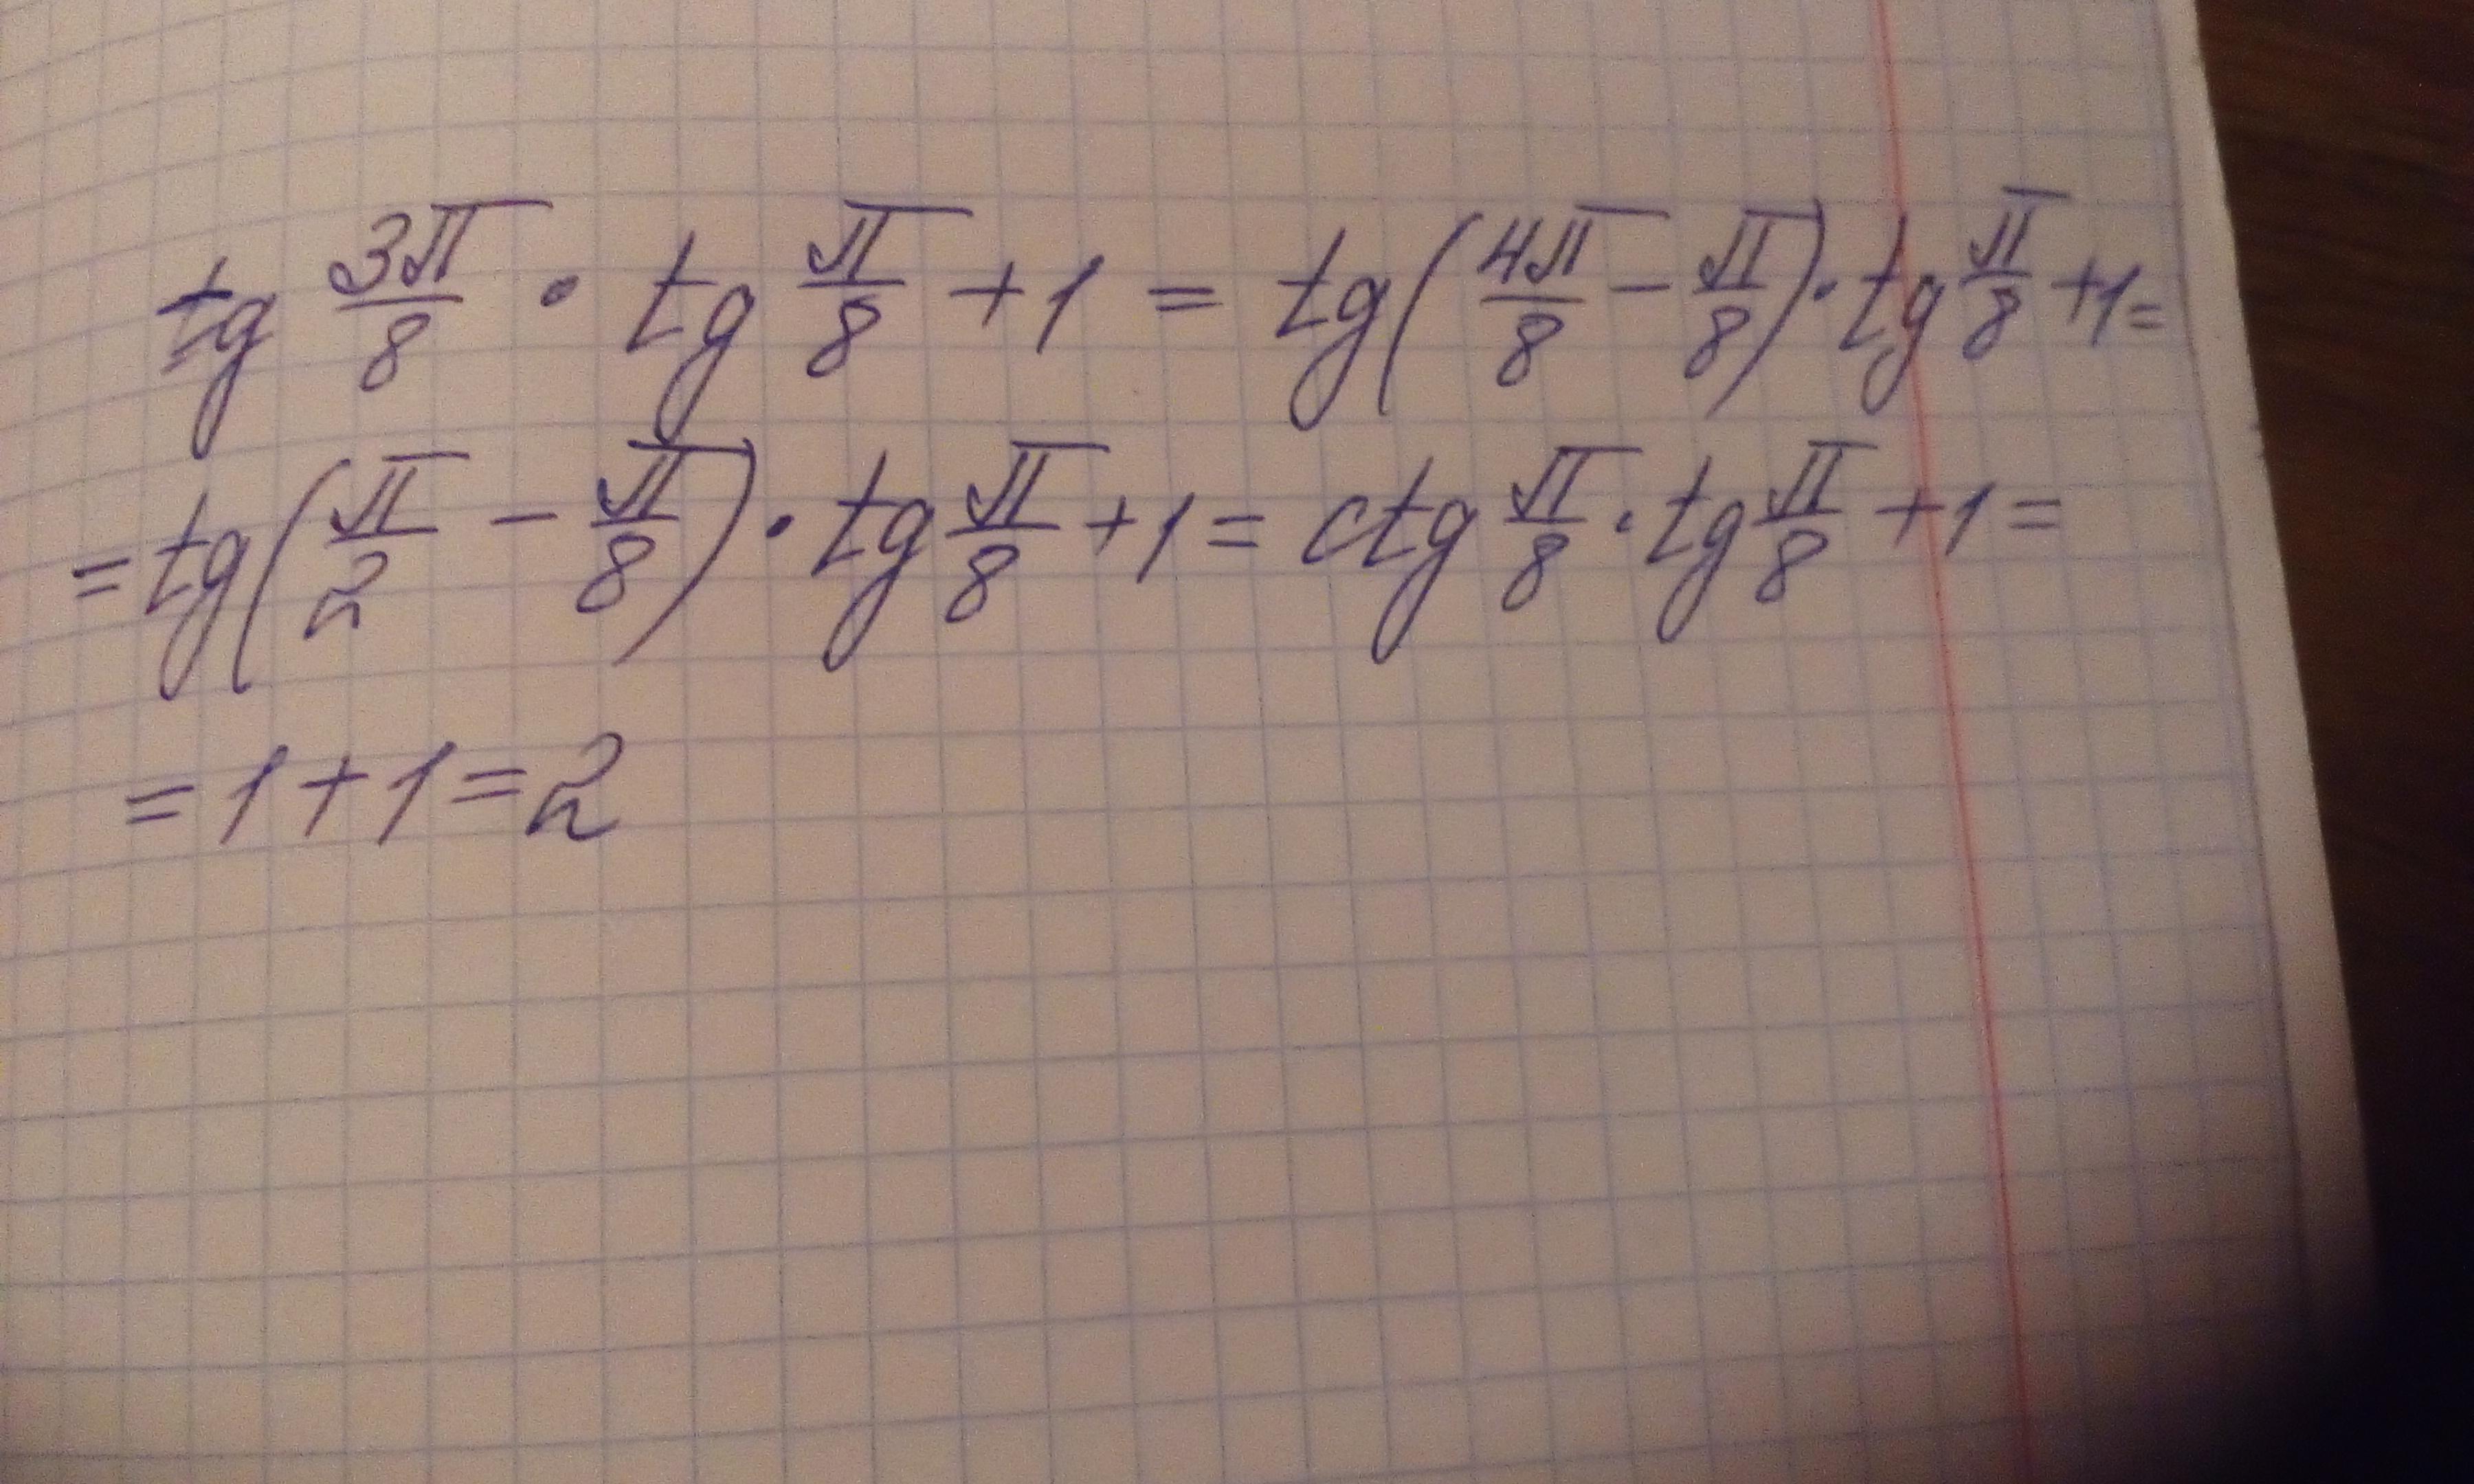 tg 3π/8 · tg π/8 + 1 = tg(4π/8 − π/8) · tg π/8 + 1 =
= tg(π/2 − π/8) · tg π/8 + 1 = ctg π/8 · tg π/8 + 1 =
= 1 + 1 = 2